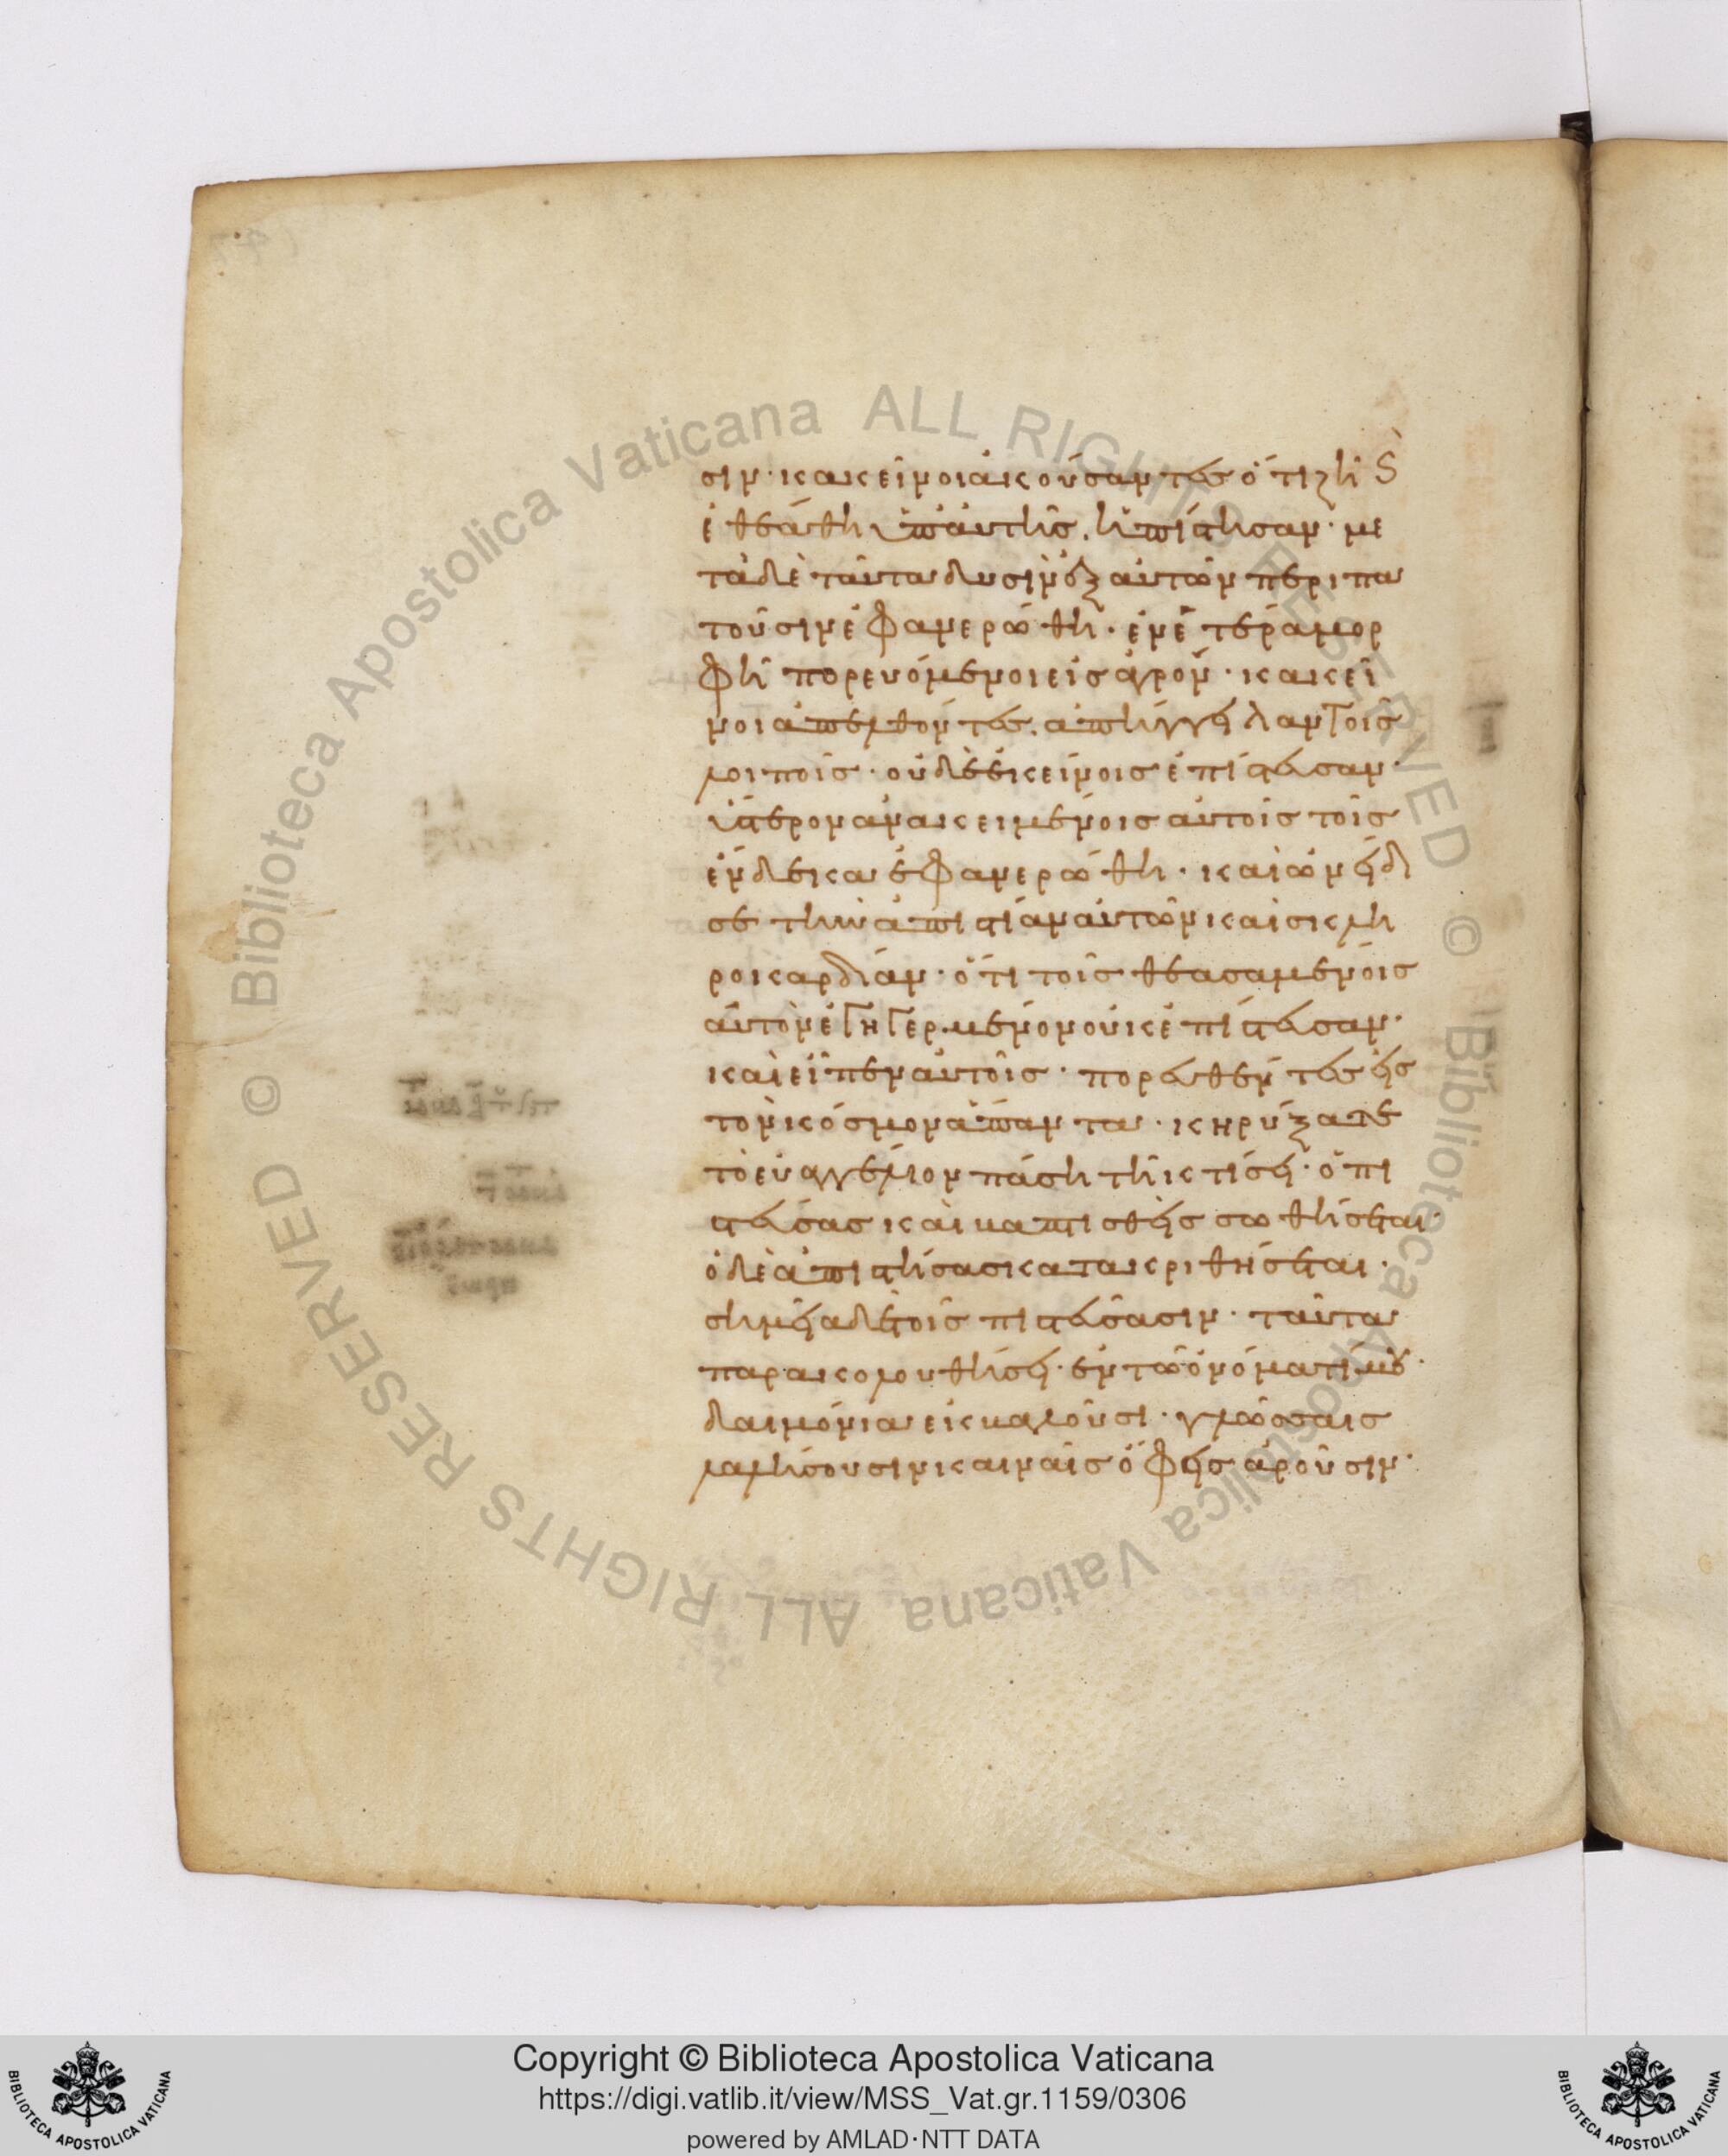 σιν· κἀκεῖνοι ἀκούσαντες ὅτι ζῆ καὶ
ἐθεάθη ὑπ' αὐτῆς, ἠπίστησαν· με
τὰ δὲ ταῦτα δυσὶν ἐξ αὐτῶν περιπα
τοῦσιν ἐφανερώθη· ἐν ἑτέρα μορ
φῆ πορευόμενοι εἰς ἀγρόν· κἀκεῖ
νοι ἀπελθόντες, ἀπήγγειλαν τοῖς
λοιποῖς· οὐδὲ ἐκείνοις ἐπίστευσαν·
ὕστερον ἀνακειμένοις αὐτοῖς τοῖς
ἕνδεκα ἐφανερώθη· καὶ ὠνείδι
σε τὴν ἀπιστίαν αὐτῶν καὶ σκλη
ροκαρδίαν· ὅτι τοῖς θεασαμένοις
αὐτὸν ἐγηγερμένον οὐκ ἐπίστευσαν·
καὶ εἶπεν αὐτοῖς· πορευθέντες εἰς
τὸν κόσμον ἅπαντα· κηρύξατε
τὸ εὐαγγέλιον πάση τῆ κτίσει· ὁ πι
στεύσας καὶ βαπτισθεὶς σωθήσεται·
ὁ δὲ ἀπιστήσας κατακριθήσεται·
σημεῖα δὲ τοῖς πιστεύσασιν· ταῦτα
παρακολουθήσει· ἐν τῶ ὀνόματί μου·
δαιμόνια ἐκβαλοῦσι· γλώσσαις
λαλήσουσιν καιναῖς ὄφεις ἀροῦσιν·
© Biblioteca Apostolica Vaticana ALL RIGHTS RESERVED © Biblioteca Apostolica Vaticana ALL RIGHTS RESERVED
Copyright © Biblioteca Apostolica Vaticana
https://digi.vatlib.it/view/MSS_Vat.gr.1159/0306
powered by AMLAD·NTT DATA
BIBLIOTECA APOSTOLICA VATICANA
BIBLIOTECA APOSTOLICA VATICANA